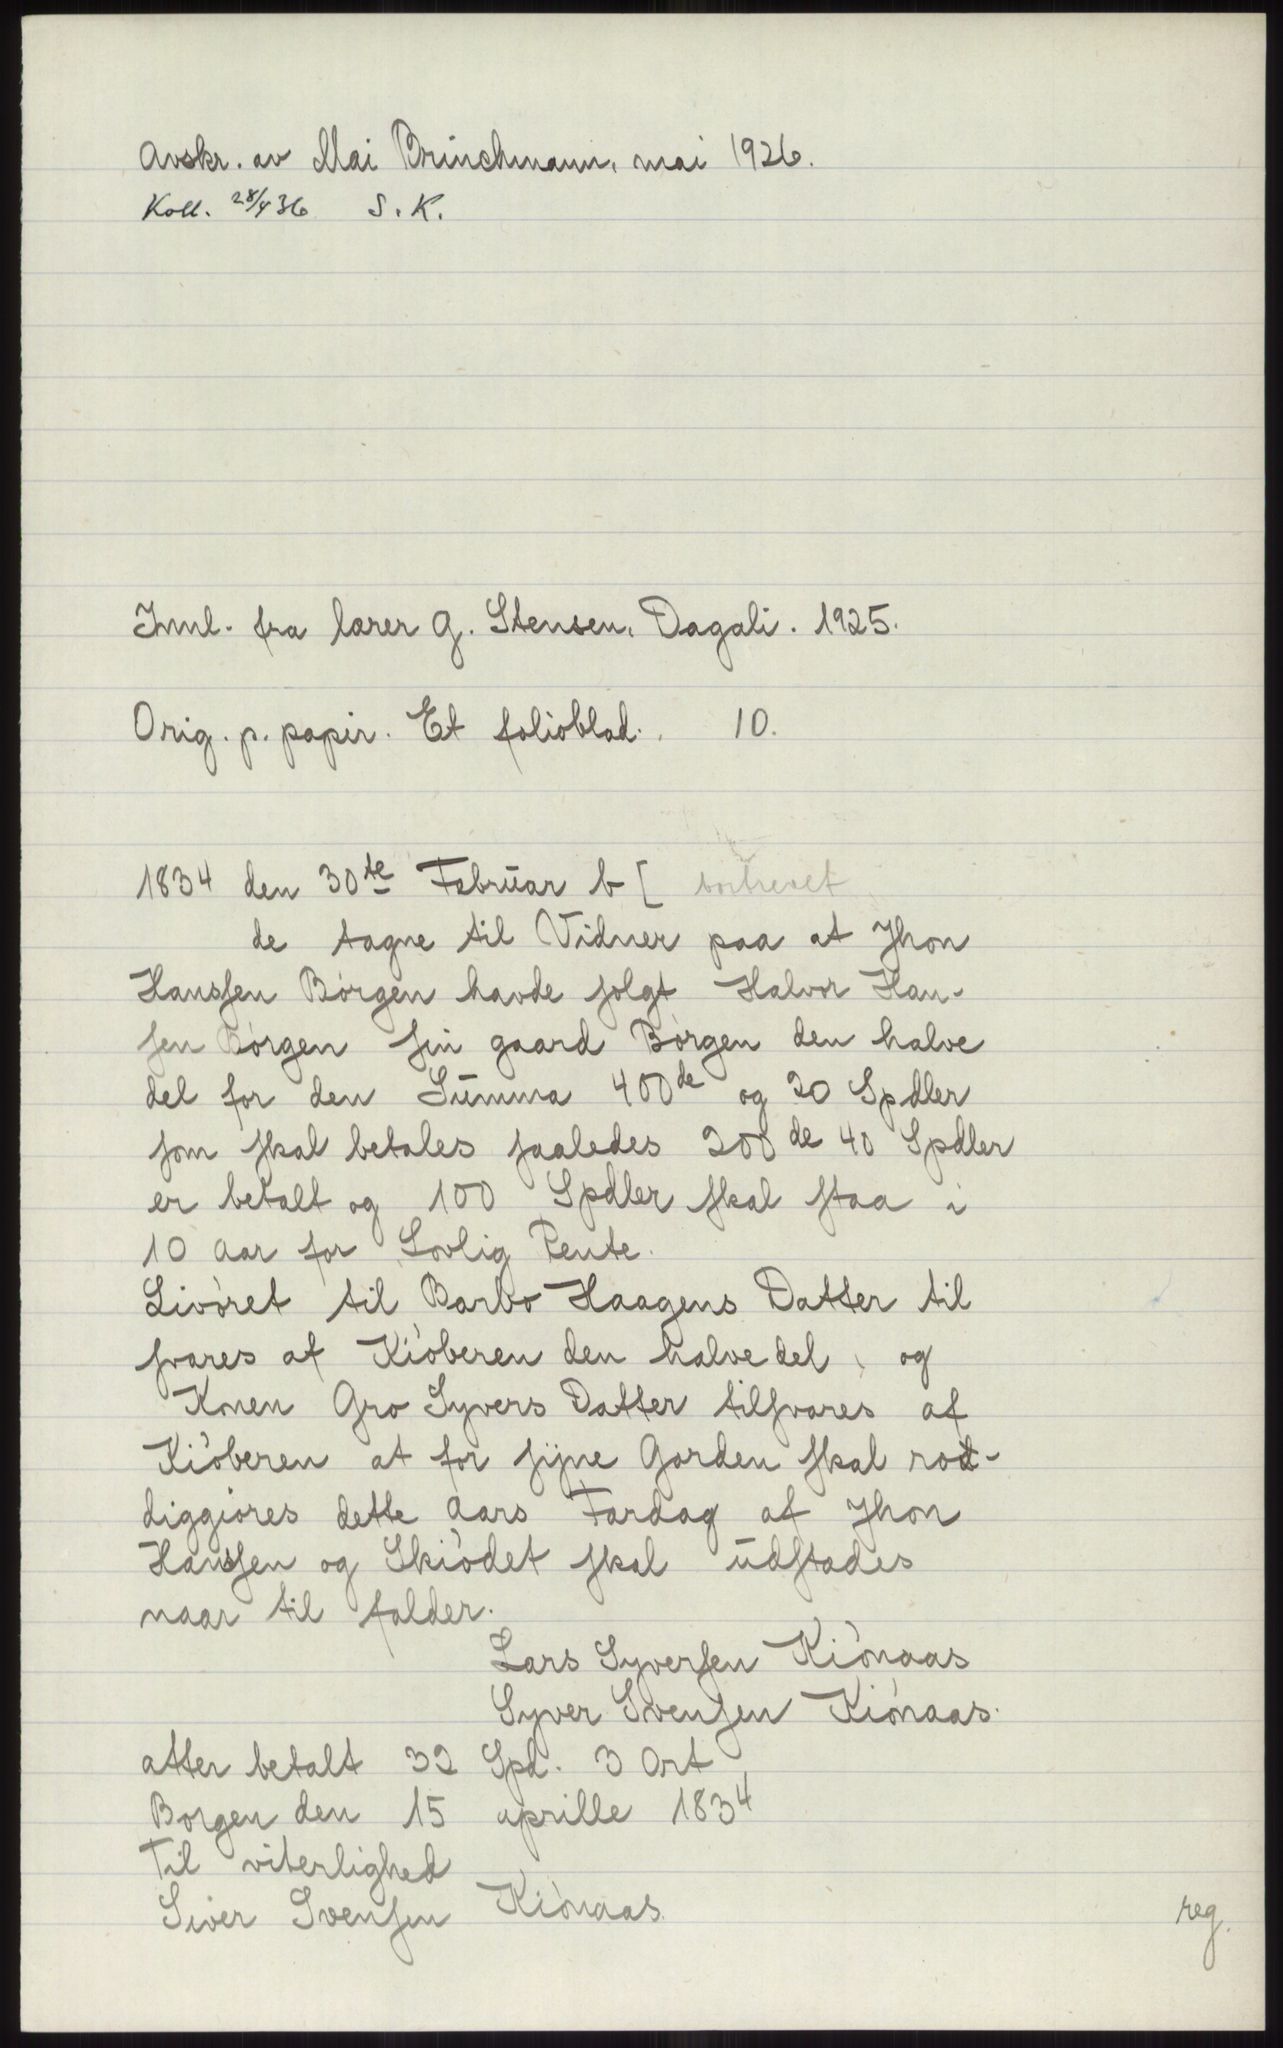 Avskr. av Mai Brinchmann, mai 1926.
Koll. 28/4 36 S. K.
Innl. fra lærer G. Stensen, Dagali. 1925.
Orig. p. papir. Et folioblad. 10.
1834 den 30te Februar b [ bortrevet
de tagne til Vidner paa at Jhon
Hanssen Börgen havde solgt Halvor Han-
sen Börgen sin gaard Börgen den halve
del for den Summa 400de og 20 Spdler
som skal betales saaledes 200de 40 Spdler
er betalt og 100 Spdler skal staa i
10 Aar for Lovlig Rente.
Livöret til Barbo Haagens Datter til
svares af Kiöberen den halve del, og
Konen Gro Syvers Datter tilsvares af
Kiöberen at for sijne Garden skal rod-
diggiöres dette Aars Fardag af Jhon
Hanssen og Skiödet skal udstades
naar til falder.
Lars Syversen Kiönaas
Syver Svensen Kiönaas.
atter betalt 32 Spd. 3 Ort
Borgen den 15 aprille 1834
Til viterlighed
Siver Svensen Kiönaas
reg.